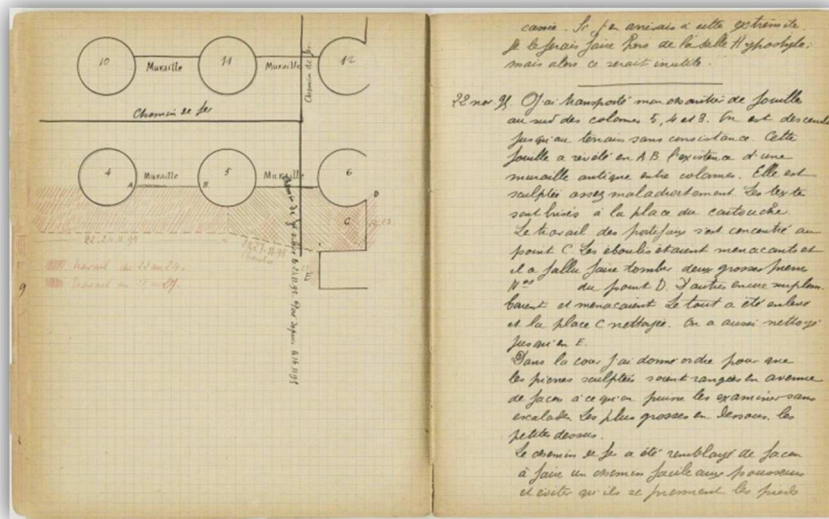 10
Muraille
11
Muraille
Chemin de fer
12
Chemin de fer
4
A
Muraille
B
5
Muraille
6
D
C
E
22-24.11.95
travail du 22 au 24.
Travail du
9
cassie. Si j'en arrivais à cette extrémité
je le ferais faire hors de la salle Hypostyle;
mais alors ce serait inutile.
22 nov 95. J'ai transporté mon chantier de fouille
au sud des colonnes 5, 4 et 3. On est descendu
jusqu'au terrain sans consistance. Cette
fouille a révélé en A B l'existence d'une
muraille antique entre colonnes. Elle est
sculptée assez maladroitement. Les textes
sont brisés à la place du cartouche.
Le travail des portefaix s'est concentré au
point C. Les éboulis étaient menaçants et
il a fallu faire tomber deux grosses pierres
du point D. D'autres encore surplom-
baient et menaçaient. Le tout a été enlevé
et la place C nettoyée. On a aussi nettoyé
jusqu'en E.
Dans la cour j'ai donné ordre pour que
les pierres sculptées soient rangées en avenue
de façon à ce qu'on puisse les examiner sans
escalader. Les plus grosses en dessous, les
petites dessus.
Le chemin de fer a été remblayé de façon
à faire un chemin facile aux pousseurs
et éviter qu'ils se prennent les pieds